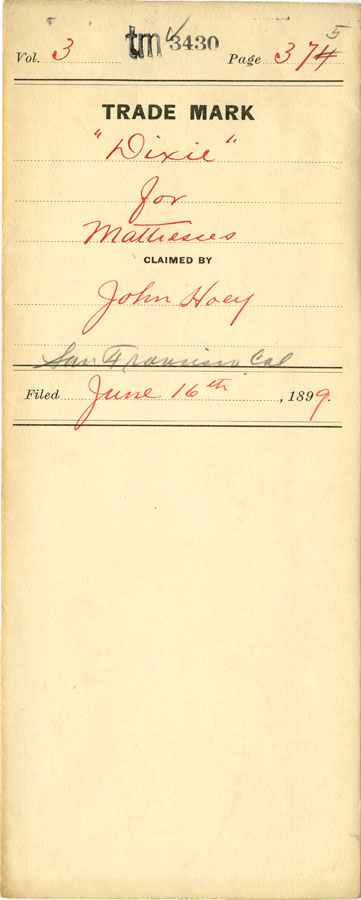 Vol. 3 tm 3430 Page 374 5
TRADE MARK
"Dixie"
for
Mattresses
CLAIMED BY
John Hoey
San Francisco Cal
Filed June 16th, 1899.